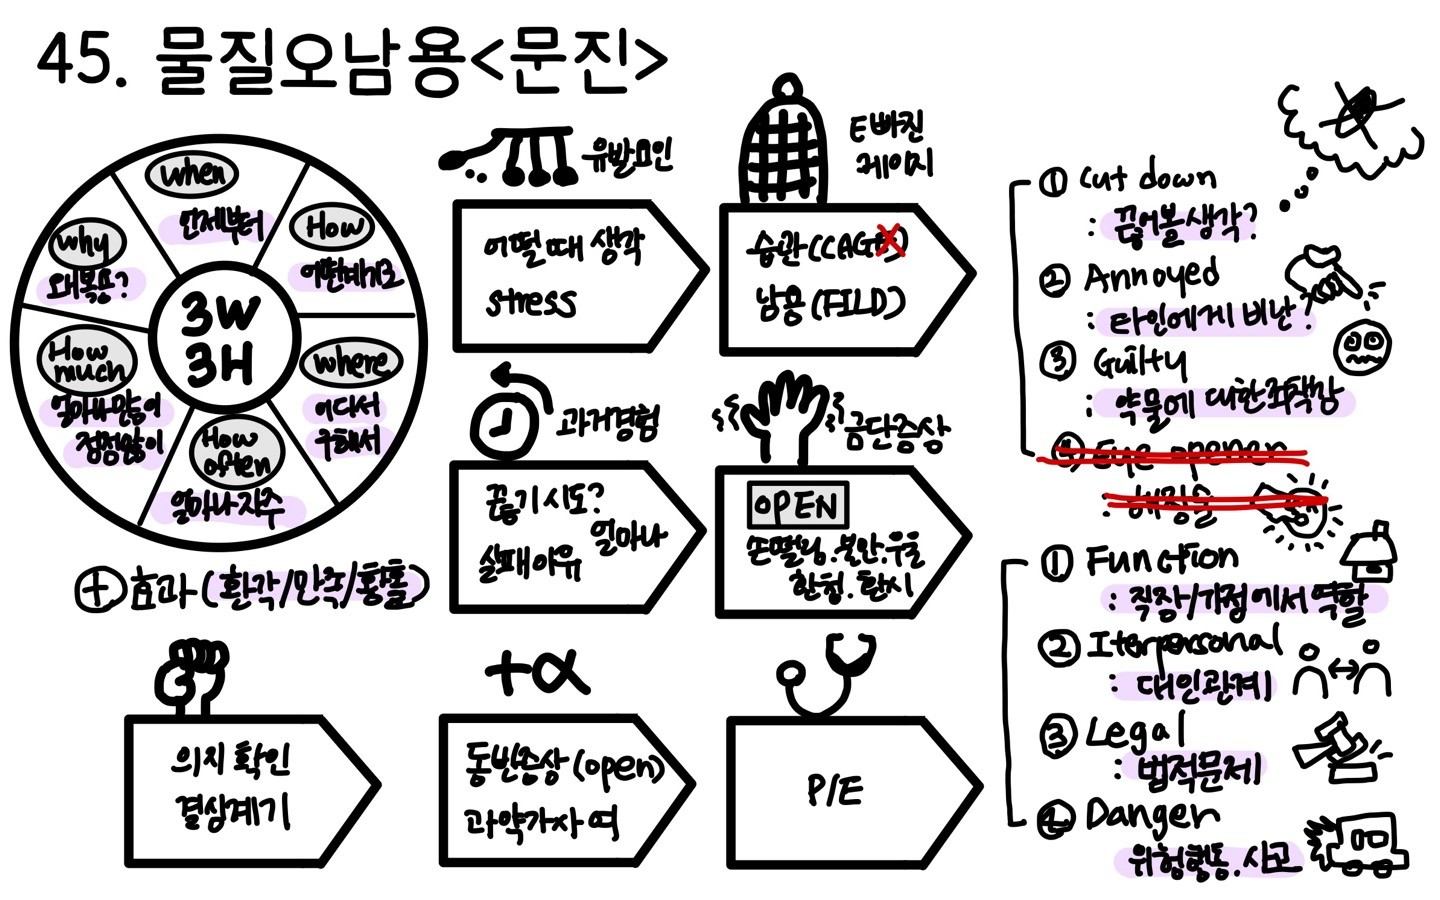 45. 물질오남용<문진>
when
언제부터
How
어떤계기로
why
왜복용?
3W
3H
where
어디서
구해서
How
much
얼마나많이
정점많이
How
often
얼마나자주
+ 효과(환각/만족/황홀)
유발요인
어떨때 생각
stress
E빠진
케이지
습관(CAGE)
남용(FILD)
과거경험
끊기시도?
얼마나
실패이유
금단증상
OPEN
손떨림.불안.우울
환청.환시
의지확인
결심계기
+α
동반증상(open)
과약가사여
P/E
① Cut down
: 끊어볼생각?
② Annoyed
: 타인에게 비난?
③ Guilty
: 약물에 대한죄책감
④ Eye opener
: 해장술
① Function
: 직장/가정에서 역할
② Iterpersonal
: 대인관계
③ Legal
: 법적문제
④ Danger
위험행동.사고